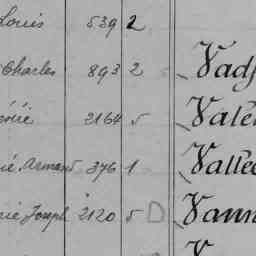 Louis 539 2
Charles 893 2 Vads
2164 5 Valé
Armand 376 1 Vallée
rie Joseph 2120 5 D Vann
V